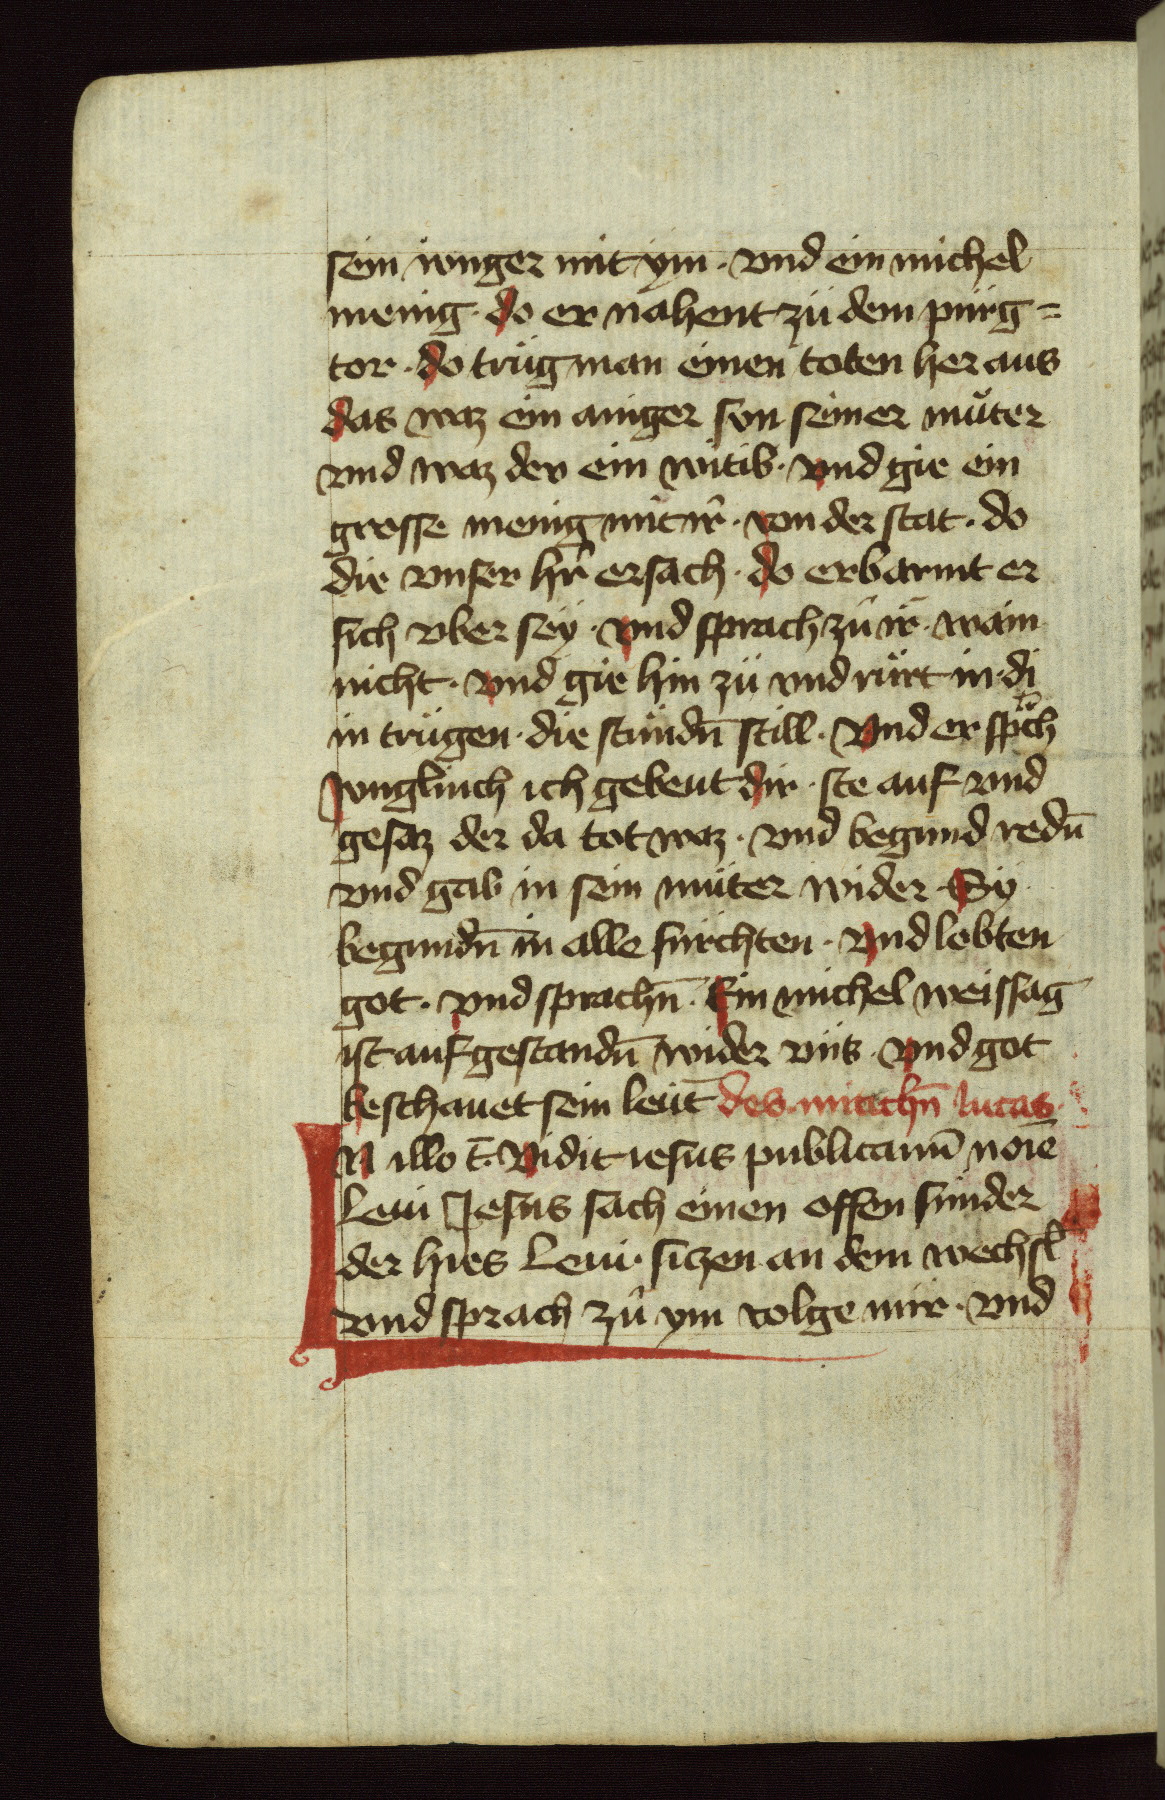 sein iunger mit ym · vnd ein michel
menig · do er nahent zů dem pürg =
tor · do trůg man einen toten her aus
das waz ein ainger sun seiner můter
vnd waz der ein witib · vnd gie ein
grosse menig mit ir̄ · von der stat · do
die vnser hr̄ ersach · do erbarmt er
sich vber sey · vnd sprach zů ir̄ · wain
nicht · vnd gie hin zů vnd růrt in · di
in trůgen · die stůndn̄ still · Vnd er spͣch
Junglinch ich gebeut dir · ste auf vnd
gesaz der da tot waz · vnd begund redn̄
vnd gab in sein můter wider · Sy
begundn̄ in alle fürchten · Vnd lobten
got · vnd sprachn̄ · Ein michel weissag
ist auf gestandn̄ wider vns · vnd got
beschauet sein leut̄ des mitichn̄ lucas ·
IN illo t̄ · Vidit iesus publicanū noīe
Leui Jesus sach einen offen sunder
der hies Leui · sizen an dem wechsl̄
vnd sprach zů ym volge mir · vnd